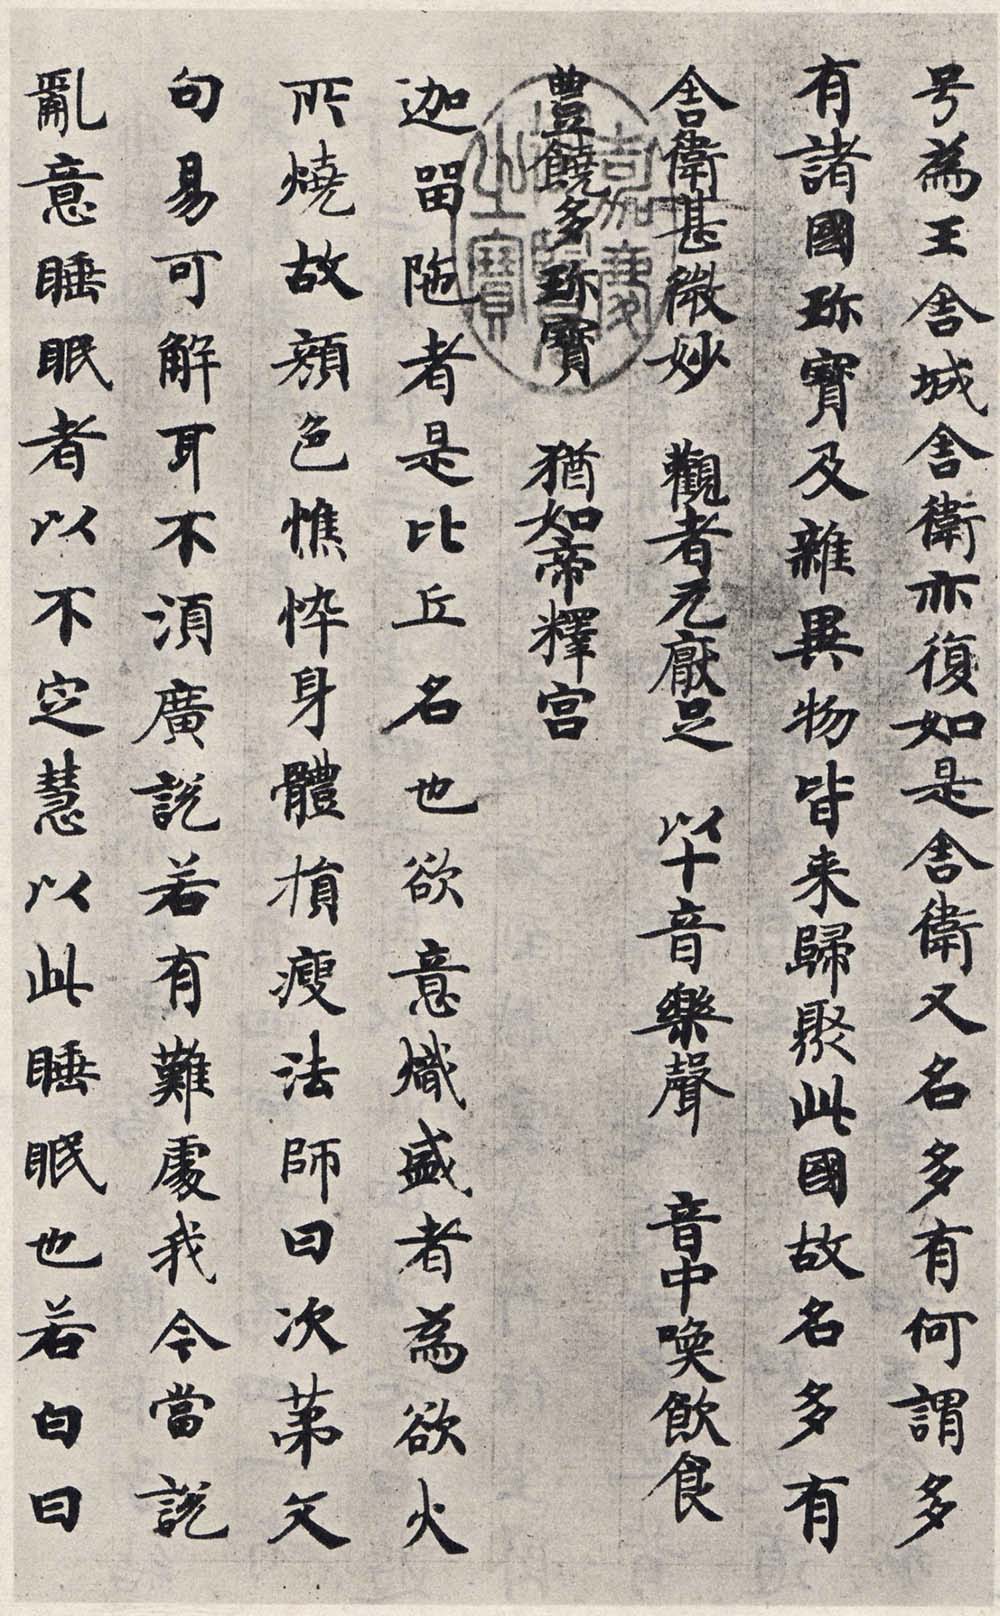 号為王舎城舎衛亦復如是舎衛又名多有何謂多
有諸國珎寳及雜異物皆来歸聚此國故名多有
舎衛甚微妙　觀者无厭足　以十音樂聲　音中喚飲食
豊饒多珎寳　猶如帝釋宮
迦留陁者是比丘名也欲意熾盛者為欲火
所燒故顔色憔悴身體損瘦法師曰次第文
句易可解耳不須廣說若有難處我今當說
亂意睡眠者以不定慧以此睡眠也若白日